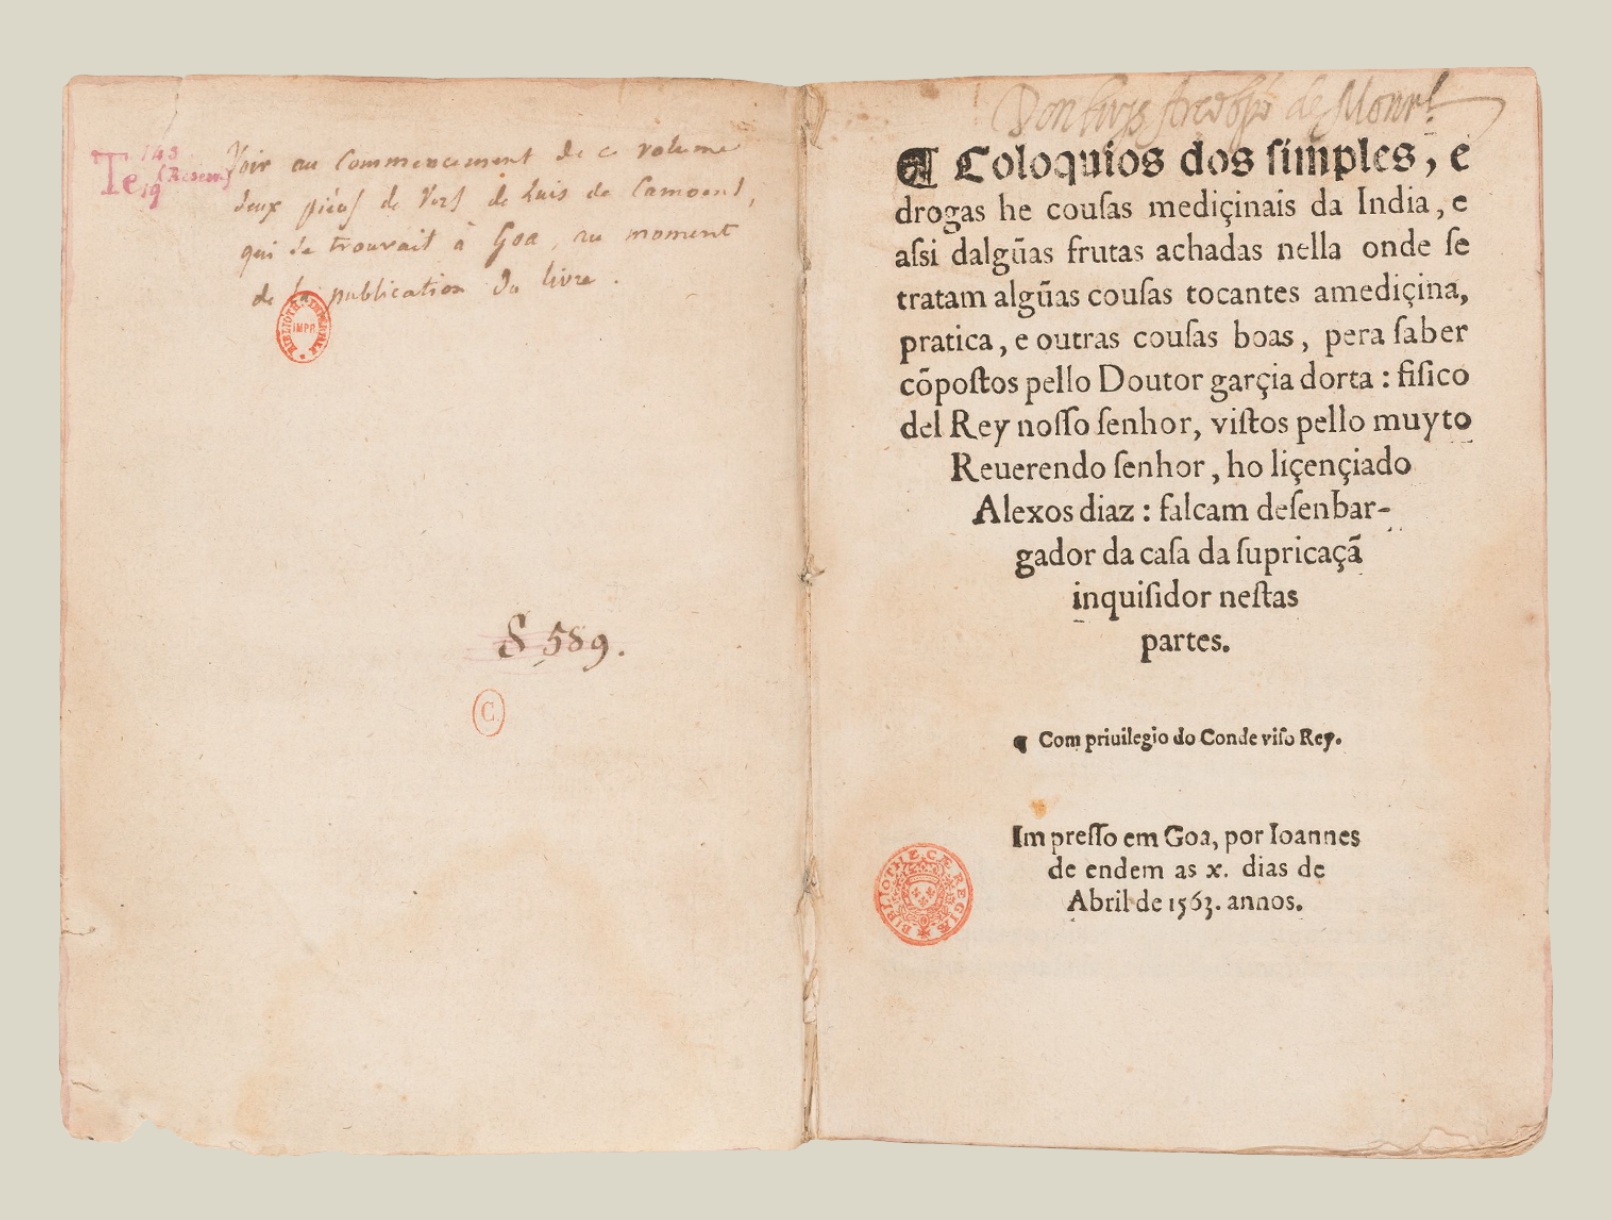 Te 143
19 (Reserve)
Voir au Commencement de ce volume
deux pièces de Vers de Luis de Camoens,
qui se trouvait à Goa, au moment
de la publication du livre.
BIBLIOTH. IMPERIALE
IMPR.
S 589.
C.
Don de Monrl
¶ Coloquios dos ſimples, e
drogas he couſas mediçinais da India, e
aſsi dalgũas frutas achadas nella onde ſe
tratam algũas couſas tocantes amediçina,
pratica, e outras couſas boas, pera ſaber
cõpoſtos pello Doutor garçia dorta : fiſico
del Rey noſſo ſenhor, viſtos pello muyto
Reuerendo ſenhor, ho liçençiado
Alexos diaz : falcam deſenbar-
gador da caſa da ſupricaçã
inquiſidor neſtas
partes.
¶ Com priuilegio do Conde viſo Rey.
Im preſſo em Goa, por Ioannes
de endem as x. dias de
Abril de 1563. annos.
BIBLIOTHECÆ REGIÆ